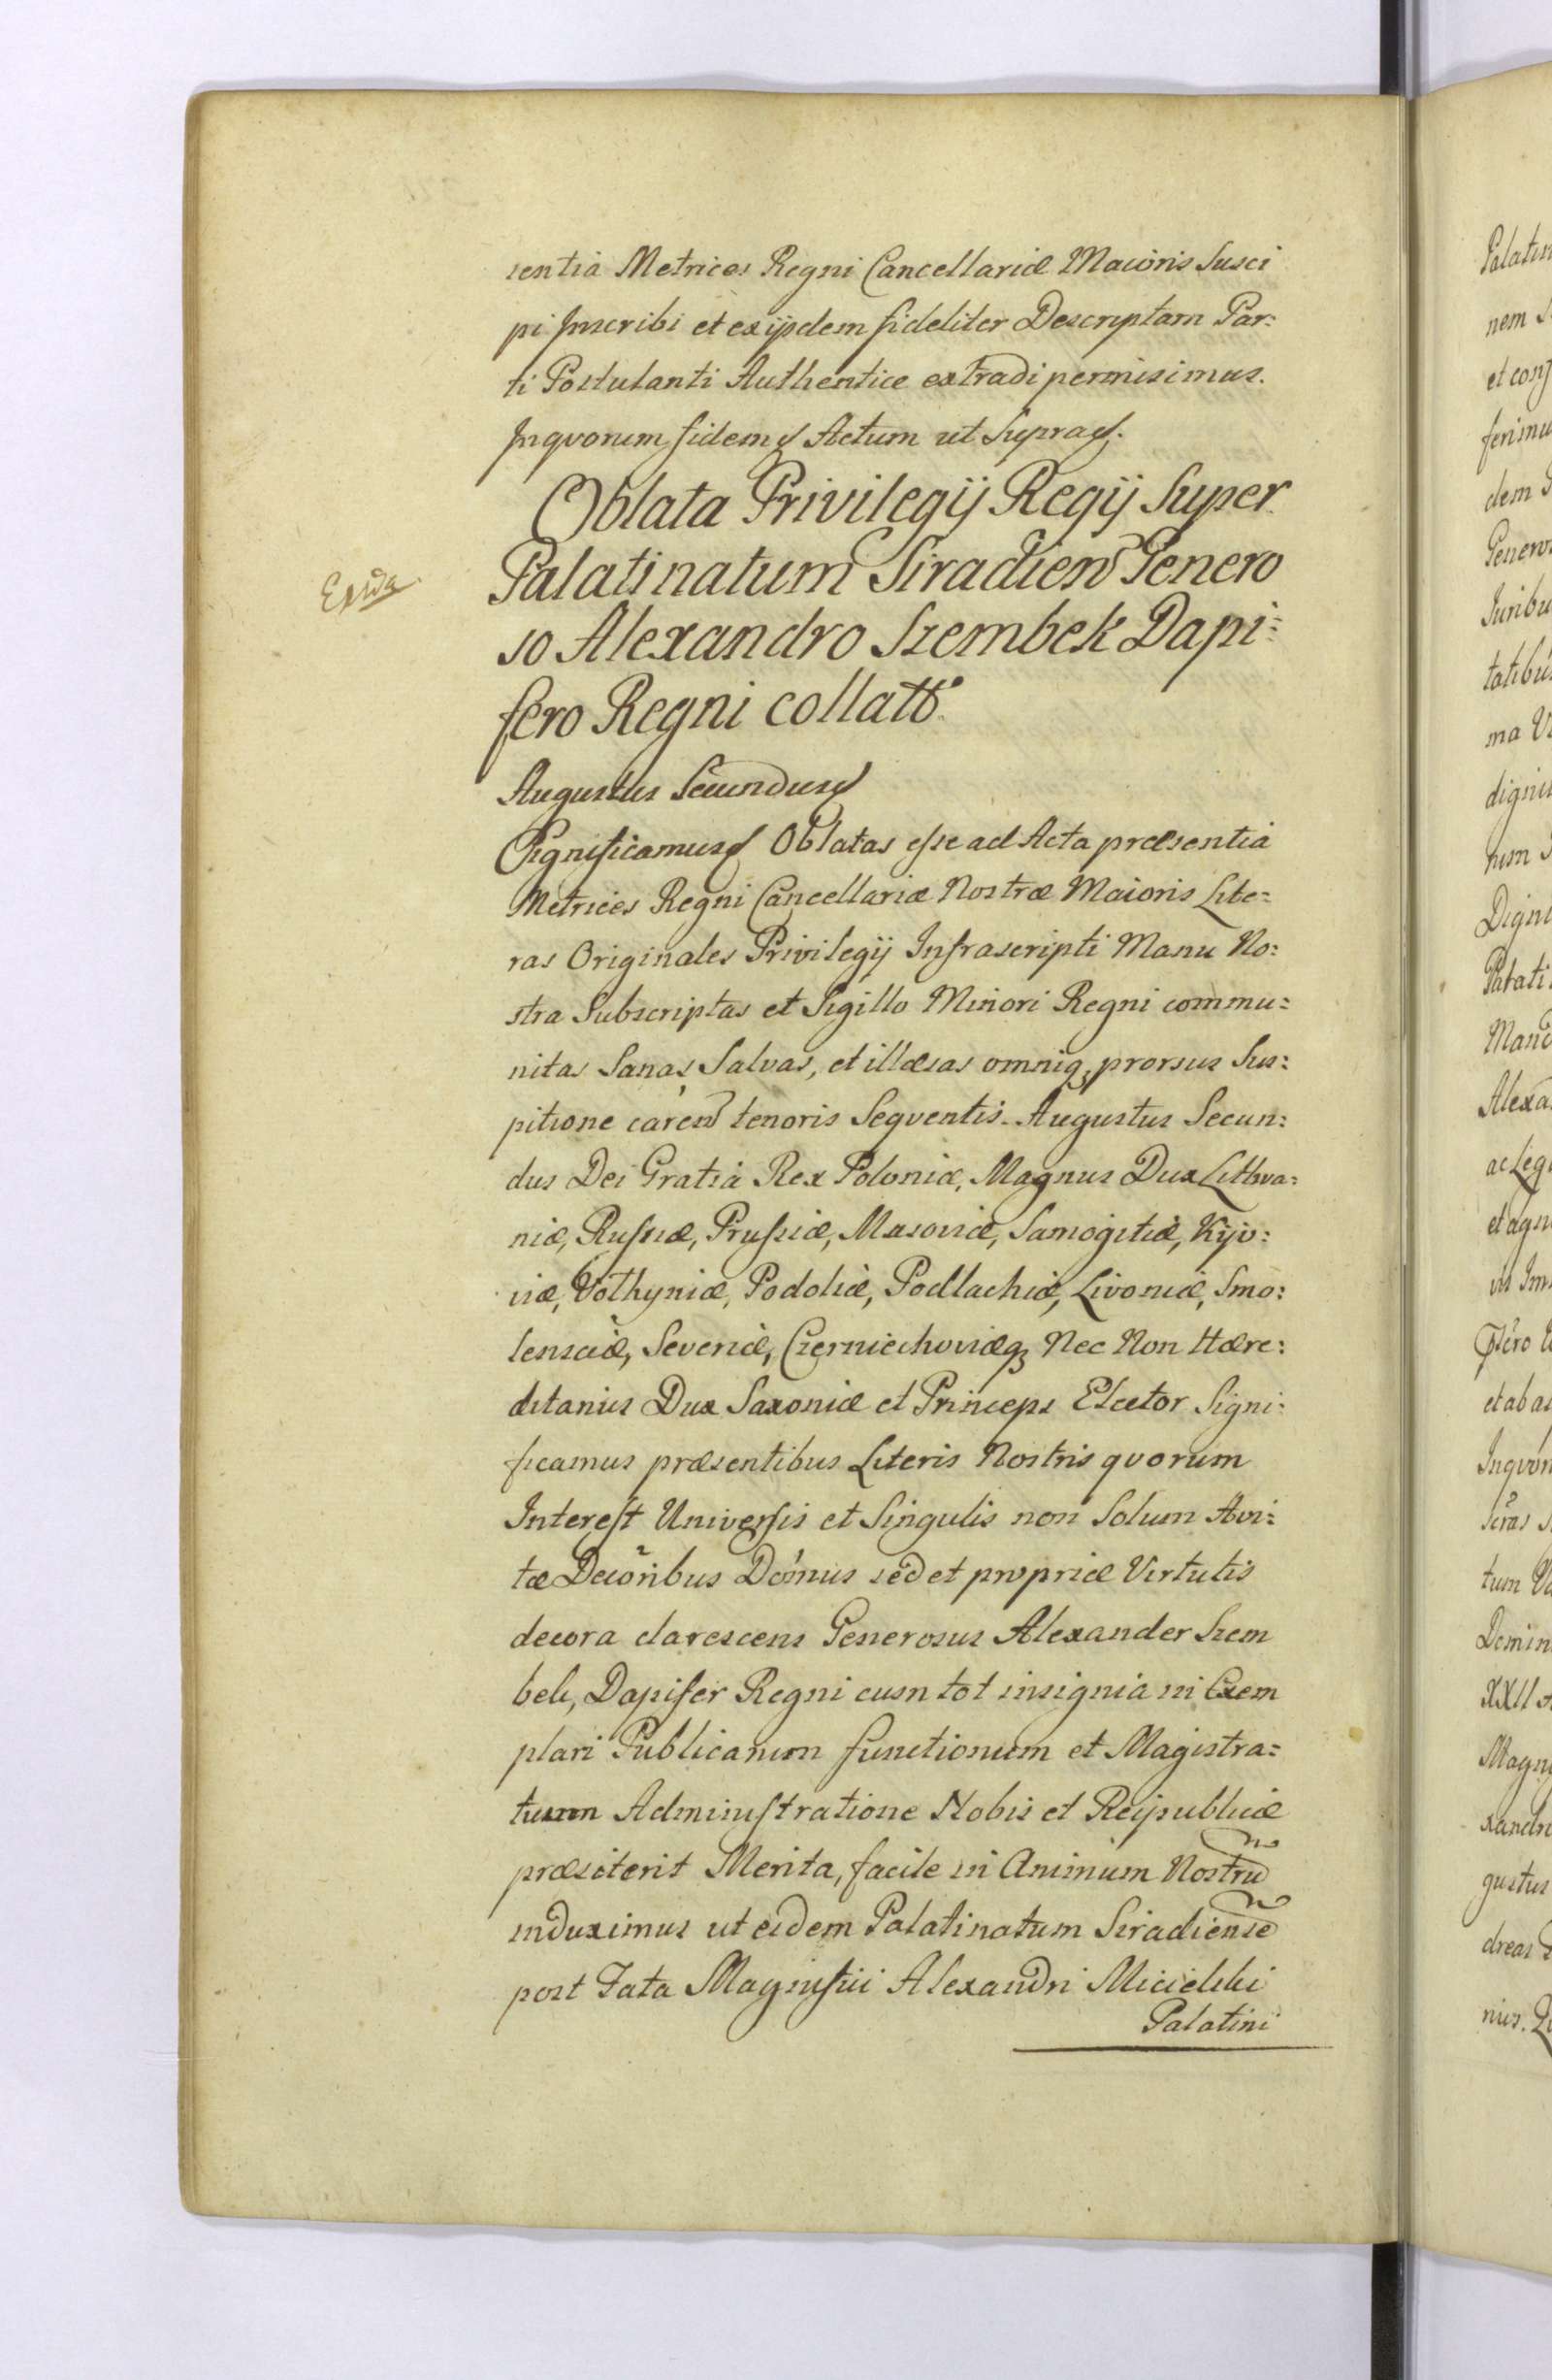 sentia Metrices Regni Cancellariæ Maioris Susci
pi Inscribi et ex ijsdem fideliter Descriptam Par:
ti Postulanti Authentice extradi permisimus.
Inqvorum fidem Actum ut Supra.
Oblata Privilegij Regij Super
Palatinatum Siradien Genero
so Alexandro Szembek Dapi:
fero Regni collatt
Augustus Secundus
Significamus Oblatas esse ad Acta præsentia
Metrices Regni Cancellariæ Nostræ Maioris Lite:
ras Originales Privilegij Infrascripti Manu No:
stra Subscriptas et Sigillo Minori Regni commu:
nitas Sanas, Salvas, et illæsas omniq, prorsus Sus:
pitione caren tenoris Seqventis. Augustus Secun:
dus Dei Gratia Rex Poloniæ, Magnus Dux Lithva:
niæ, Russiæ, Prussiæ, Masoviæ, Samogitiæ, Kijo:
viæ, Volhyniæ, Podoliæ, Podlachiæ, Livoniæ, Smo:
lensciæ, Severiæ, Czerniechoviæq, Nec Non Hære:
ditarius Dux Saxoniæ et Princeps Elector Signi:
ficamus præsentibus Literis Nostris qvorum
Interest Universis et Singulis non Solum Avi:
tæ Decoribus Domus sed et propriæ Virtutis
decora clarescens Generosus Alexander Szem
bek, Dapifer Regni cum tot insignia in Exem
plari Publicarum functionum et Magistra:
tuum Administratione Nobis et Reipublicæ
præstiterit Merita, facile in Animum Nostru
induximus ut eidem Palatinatum Siradiense
post Fata Magnifici Alexandri Micielski
Palatini